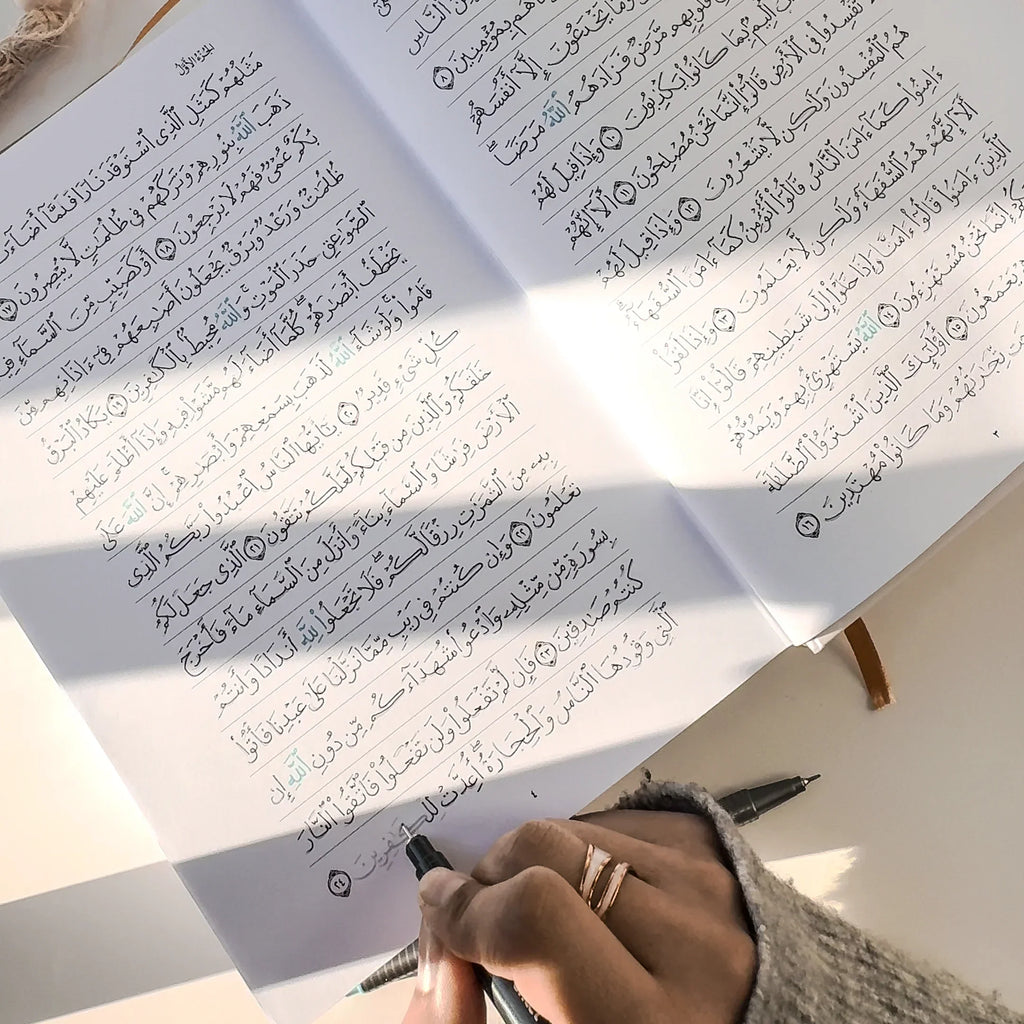 ٱلنَّاسِ
هُم بِمُؤْمِنِينَ ٨
وَمَا يَخْدَعُونَ إِلَّآ أَنفُسَهُمْ
قُلُوبِهِم مَّرَضٌ فَزَادَهُمُ ٱللَّهُ مَرَضًا
أَلِيمٌۢ بِمَا كَانُوا۟ يَكْذِبُونَ ١٠ وَإِذَا قِيلَ لَهُمْ
تُفْسِدُوا۟ فِى ٱلْأَرْضِ قَالُوٓا۟ إِنَّمَا نَحْنُ مُصْلِحُونَ ١١ أَلَآ إِنَّهُمْ
هُمُ ٱلْمُفْسِدُونَ وَلَٰكِن لَّا يَشْعُرُونَ ١٢ وَإِذَا قِيلَ لَهُمْ
ءَامِنُوا۟ كَمَآ ءَامَنَ ٱلنَّاسُ قَالُوٓا۟ أَنُؤْمِنُ كَمَآ ءَامَنَ ٱلسُّفَهَآءُ
أَلَآ إِنَّهُمْ هُمُ ٱلسُّفَهَآءُ وَلَٰكِن لَّا يَعْلَمُونَ ١٣ وَإِذَا لَقُوا۟
ٱلَّذِينَ ءَامَنُوا۟ قَالُوٓا۟ ءَامَنَّا وَإِذَا خَلَوْا۟ إِلَىٰ شَيَٰطِينِهِمْ قَالُوٓا۟ إِنَّا
إِنَّمَا نَحْنُ مُسْتَهْزِءُونَ ١٤ ٱللَّهُ يَسْتَهْزِئُ بِهِمْ وَيَمُدُّهُمْ
يَعْمَهُونَ ١٥ أُو۟لَٰٓئِكَ ٱلَّذِينَ ٱشْتَرَوُا۟ ٱلضَّلَٰلَةَ
تِّجَٰرَتُهُمْ وَمَا كَانُوا۟ مُهْتَدِينَ ١٦
الجزء الأول
مَثَلُهُمْ كَمَثَلِ ٱلَّذِى ٱسْتَوْقَدَ نَارًا فَلَمَّآ أَضَآءَتْ
ذَهَبَ ٱللَّهُ بِنُورِهِمْ وَتَرَكَهُمْ فِى ظُلُمَٰتٍ لَّا يُبْصِرُونَ ١٧
بُكْمٌ عُمْىٌ فَهُمْ لَا يَرْجِعُونَ ١٨ أَوْ كَصَيِّبٍ مِّنَ ٱلسَّمَآءِ فِيهِ
ظُلُمَٰتٌ وَرَعْدٌ وَبَرْقٌ يَجْعَلُونَ أَصَٰبِعَهُمْ فِىٓ ءَاذَانِهِم مِّنَ
ٱلصَّوَٰعِقِ حَذَرَ ٱلْمَوْتِ وَٱللَّهُ مُحِيطٌۢ بِٱلْكَٰفِرِينَ ١٩ يَكَادُ ٱلْبَرْقُ
يَخْطَفُ أَبْصَٰرَهُمْ كُلَّمَآ أَضَآءَ لَهُم مَّشَوْا۟ فِيهِ وَإِذَآ أَظْلَمَ عَلَيْهِمْ
قَامُوا۟ وَلَوْ شَآءَ ٱللَّهُ لَذَهَبَ بِسَمْعِهِمْ وَأَبْصَٰرِهِمْ إِنَّ ٱللَّهَ عَلَىٰ
كُلِّ شَىْءٍ قَدِيرٌ ٢٠ يَٰٓأَيُّهَا ٱلنَّاسُ ٱعْبُدُوا۟ رَبَّكُمُ ٱلَّذِى
خَلَقَكُمْ وَٱلَّذِينَ مِن قَبْلِكُمْ لَعَلَّكُمْ تَتَّقُونَ ٢١ ٱلَّذِى جَعَلَ لَكُمُ
ٱلْأَرْضَ فِرَٰشًا وَٱلسَّمَآءَ بِنَآءً وَأَنزَلَ مِنَ ٱلسَّمَآءِ مَآءً فَأَخْرَجَ
بِهِۦ مِنَ ٱلثَّمَرَٰتِ رِزْقًا لَّكُمْ فَلَا تَجْعَلُوا۟ لِلَّهِ أَندَادًا وَأَنتُمْ
تَعْلَمُونَ ٢٢ وَإِن كُنتُمْ فِى رَيْبٍ مِّمَّا نَزَّلْنَا عَلَىٰ عَبْدِنَا فَأْتُوا۟
بِسُورَةٍ مِّن مِّثْلِهِۦ وَٱدْعُوا۟ شُهَدَآءَكُم مِّن دُونِ ٱللَّهِ إِن
كُنتُمْ صَٰدِقِينَ ٢٣ فَإِن لَّمْ تَفْعَلُوا۟ وَلَن تَفْعَلُوا۟ فَٱتَّقُوا۟ ٱلنَّارَ
ٱلَّتِى وَقُودُهَا ٱلنَّاسُ وَٱلْحِجَارَةُ أُعِدَّتْ لِلْكَٰفِرِينَ ٢٤
٤